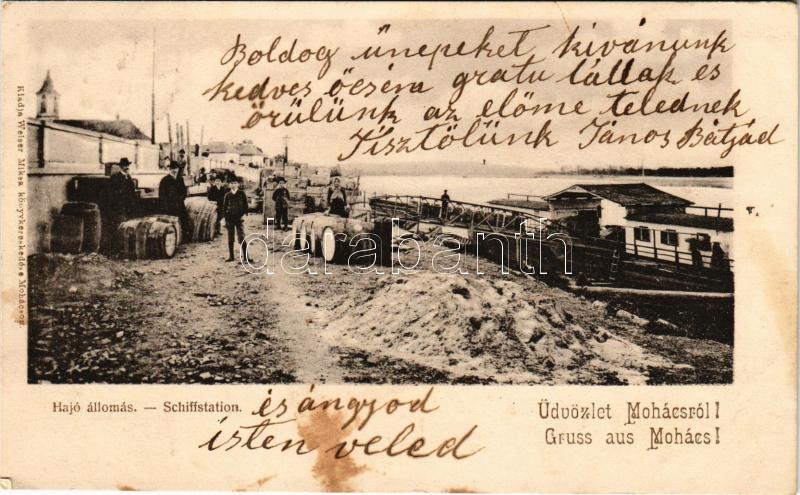 Boldog ünepeket kivánunk
kedves öcsém gratu lállak es
örülünk az előme telednek
Tisztölünk János Bátjád
Kiadja Weiser Miksa könyvkereskedése Mohácson
darabanth.com
Hajó állomás. — Schiffstation.
és ángyod
isten veled
Üdvözlet Mohácsról!
Gruss aus Mohács!